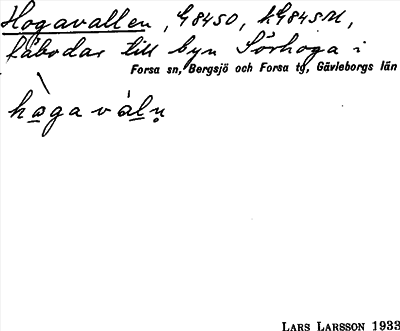 Hogavallen, G84SO, kG84SM,
fäbodar till byn Sörhoga i
Forsa sn, Bergsjö och Forsa tg, Gävleborgs län
hogavàln
LARS LARSSON 1933